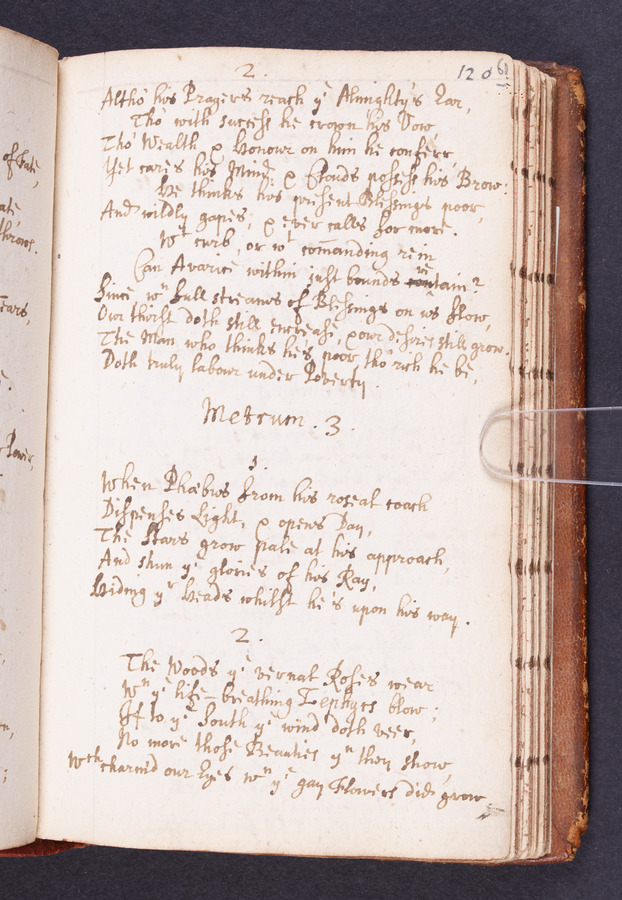 120 61
2.
Altho' his Prayers reach yᵉ Almighty's Ear,
Tho' with success he crown his Vow,
Tho' Wealth & Honour on him he conferr,
Yet cares his Mind, & Clouds possess his Brow:
He thinks his present Blessings poor,
And wildly gapes, & ever calls for more.
Wᵗ curb, or wᵗ comanding rein
Can Avarice within just bounds contain?
Since wⁿ full streams of Blessings on us flow,
Our thirst doth still encrease, & our desires still grow.
The Man who thinks he's poor tho' rich he be,
Doth truly labour under Poverty.
Metrum. 3.
1.
When Phœbus from his roseal coach
Dispenses Light, & opens Day,
The Stars grow pale at his approach,
And shun yᵉ glories of his Ray,
Hiding yʳ heads whilst he is upon his way.
2.
The Woods yᵉ vernal Roses wear
Wⁿ yᵉ life-breathing Zephyrs blow;
If to yᵉ South yᵉ wind doth veer,
No more those Beauties yⁿ they show,
Wᶜʰ charm'd our Eyes wⁿ yᵉ gay Flowers did grow.
of Fate,
ate,
throws.
Tears,
Power,